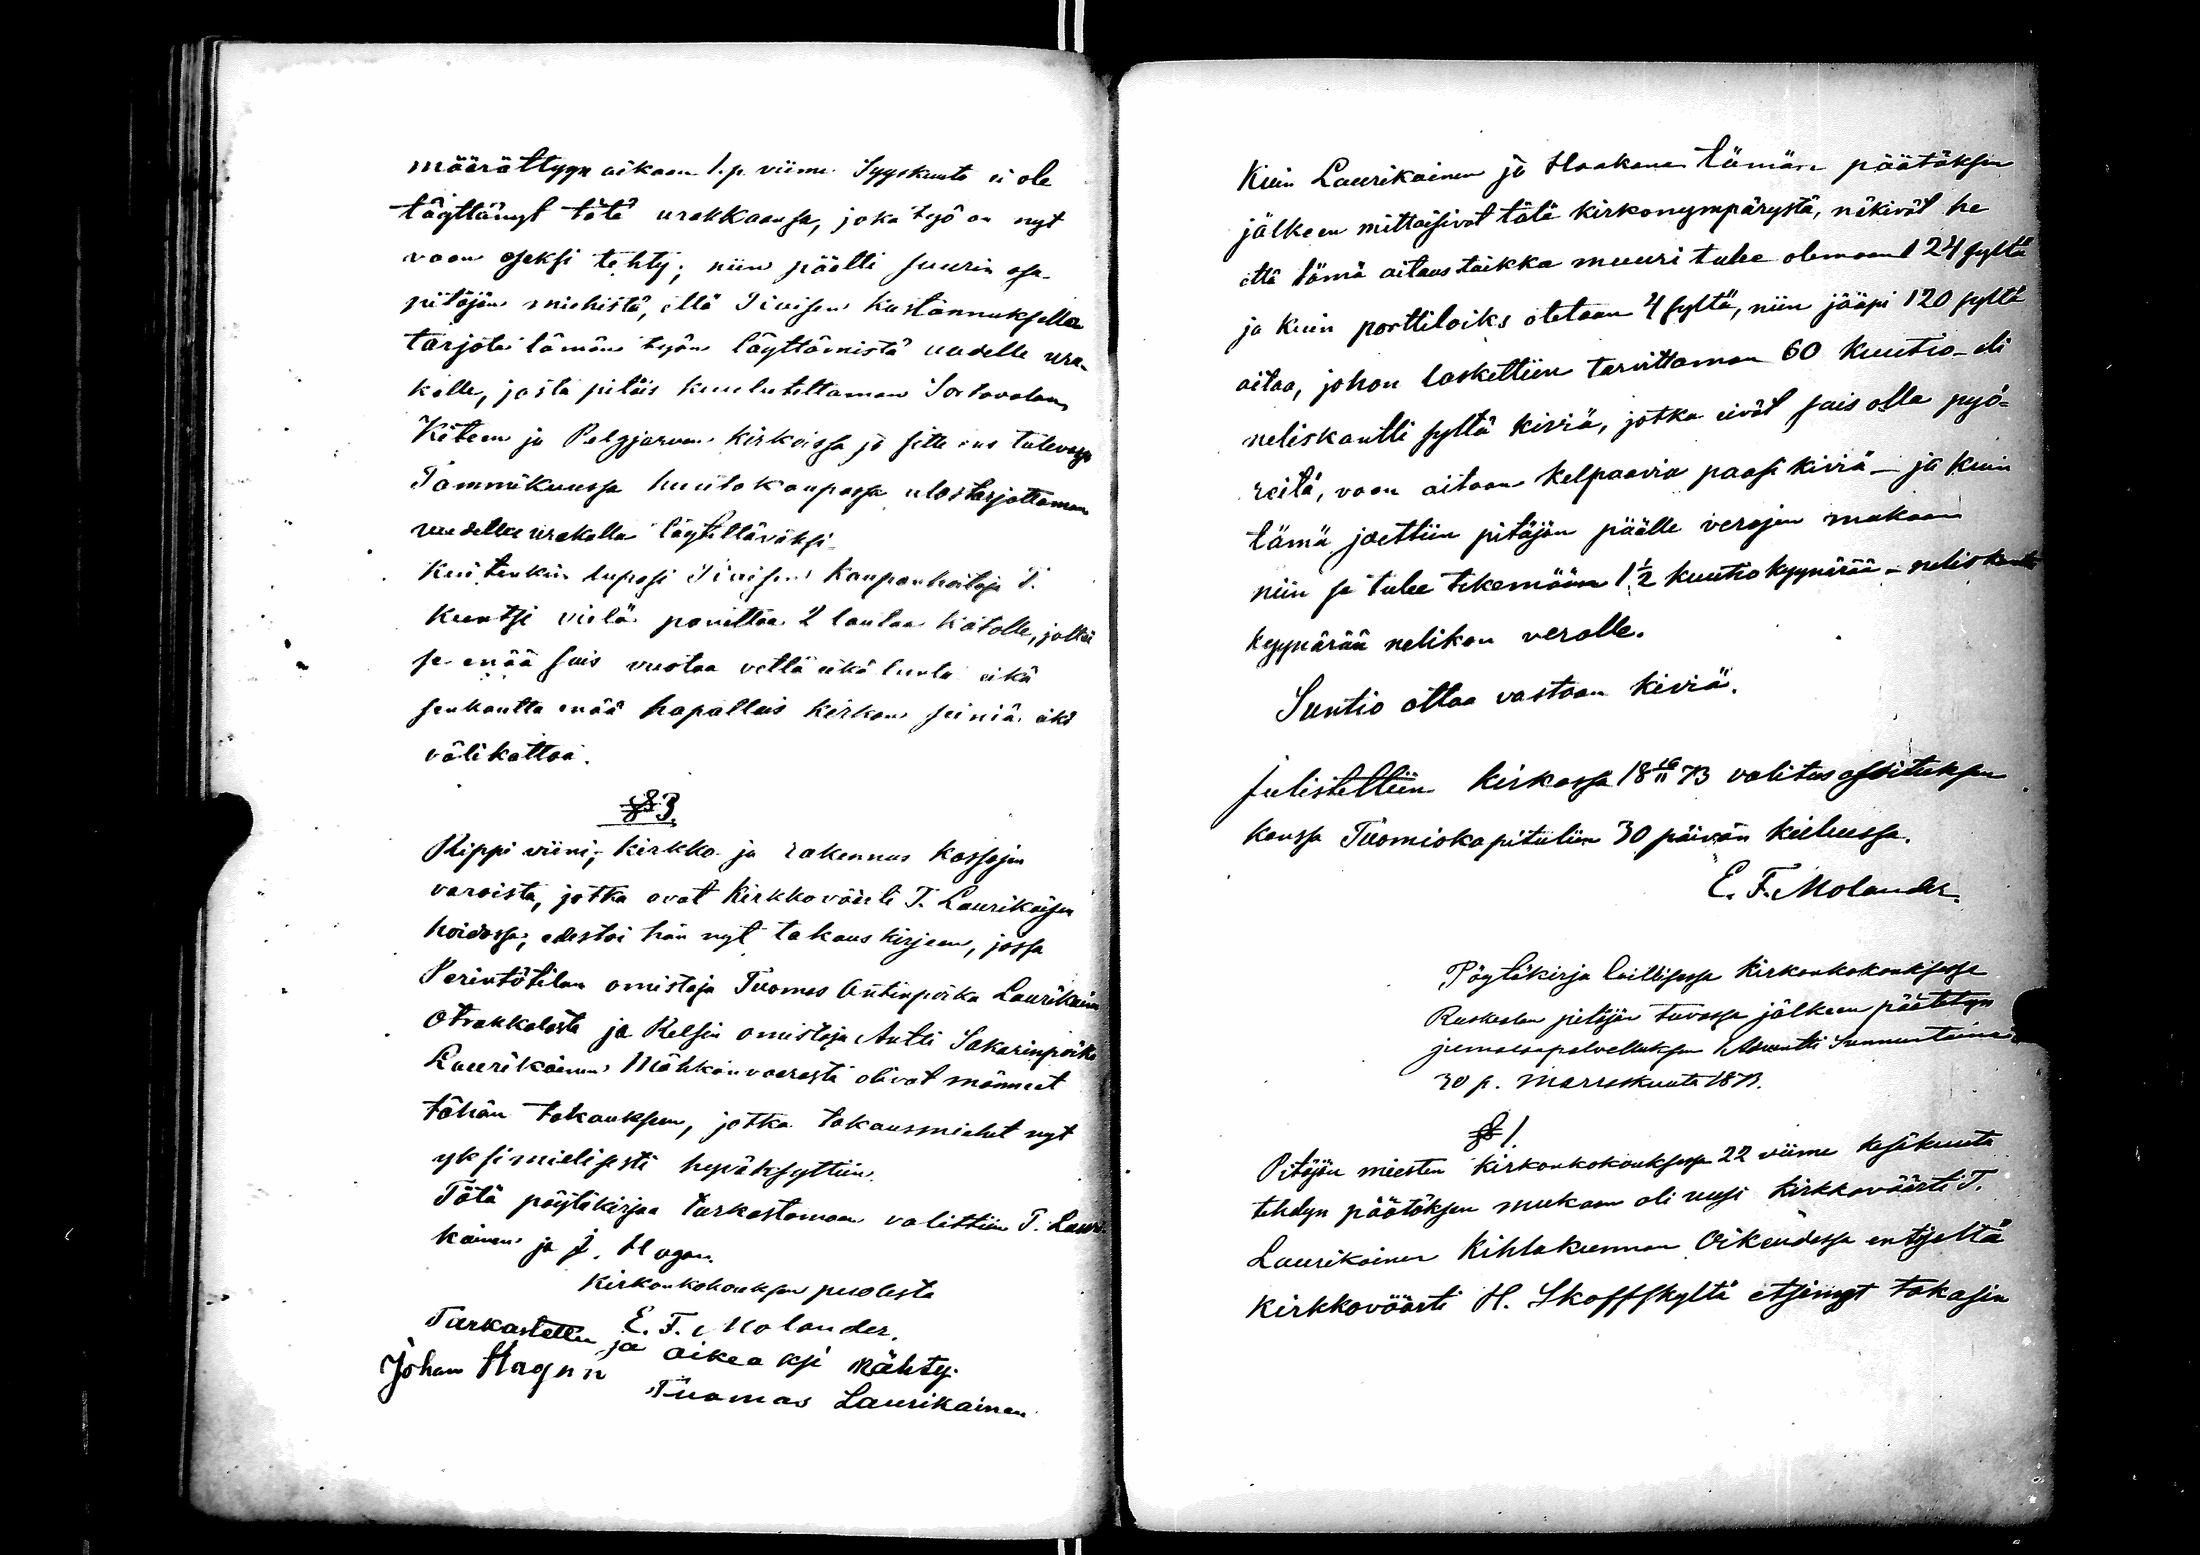 määrättyyn aikaan 1. p. viime Syyskuuta ei ole
täyttänyt tätä urakkaansa, joka työ on nyt
vaan osaksi tehty; niin päätti suurin osa
pitäjän miehistä, että Tiaisen kustannuksella
tarjota tämän työn täyttämistä uudelle ura-
kalle, josta pitäis kuulutettaman Sortavalan
Kiteen ja Pelgjärven kirkoissa ja sitte ens tulevassa
Tammikuussa huutokaupassa ulostarjottaman
uudelle urakalle täytettäväksi.
Kuitenkin lupasi Tiaisen kaupanhoitaja T.
Kuntsi vielä panettaa 2 lautaa katolle, jottei
se enää sais vuotaa vettä eikä lunta eikä
senkautta enää hapattais kirkon seiniä eikä
välikattoa.
§ 3.
Rippi viini, kirkko ja rakennus kassojen
varoista, jotka ovat kirkkoväärti T. Laurikaisen
hoidossa, edestoi hän nyt takauskirjeen, jossa
Perintötilan omistaja Tuomas Antinpoika Laurikainen
Otrakkalasta ja Relsin omistaja Antti Sakarinpoika
Laurikainen Mähkönvaarasta olivat männeet
tähän takaukseen, jotka takausmiehet nyt
yksimielisesti hyväksyttiin.
Tätä pöytäkirjaa tarkastamaan valittiin T. Lauri-
kainen ja J. Hagan.
Kirkonkokouksen puolesta
E. F. Molander.
Tarkastettu ja oikea ksi nähty.
Johan Hagan
Tuomas Laurikainen
Kuin Laurikainen ja Haakana tämän päätöksen
jälkeen mittaisivat tätä kirkonympärystä, näkivät he
että tämä aitaus taikka muuri tulee olemaan 124 syltä
ja kuin porttiloiks otetaan 4 syltä, niin jääpi 120 syltä
aitaa, johon laskettiin tarvittaman 60 kuutio- eli
neliskantti syltä kiviä, jotka eivät sais olla pyö-
reitä, vaan aitaan kelpaavia paasi kiviä – ja kuin
tämä jaettiin pitäjän päälle verojen mukaan
niin se tulee tekemään 1 1/2 kuutio kyynärää – neliskantti
kyynärää nelikon verolle.
Suntio ottaa vastaan kiviä.
Julistettiin kirkossa 18 16/11 73 valitus osoituksen
kanssa Tuomiokapituliin 30 päivän kuluessa.
E. F. Molander.
Pöytäkirja laillisessa kirkonkokouksessa
Ruskealan pitäjän tuvassa jälkeen päätetyn
jumalanpalveluksen Adventti Sunnuntaina
30 p. Marraskuuta 1873.
§ 1.
Pitäjän miesten kirkonkokouksessa 22 viime kesäkuuta
tehdyn päätöksen mukaan oli uusi kirkkoväärti T.
Laurikainen Kihlakunnan Oikeudessa entiseltä
kirkkoväärti H. Skoffskyltä etsinyt takasin